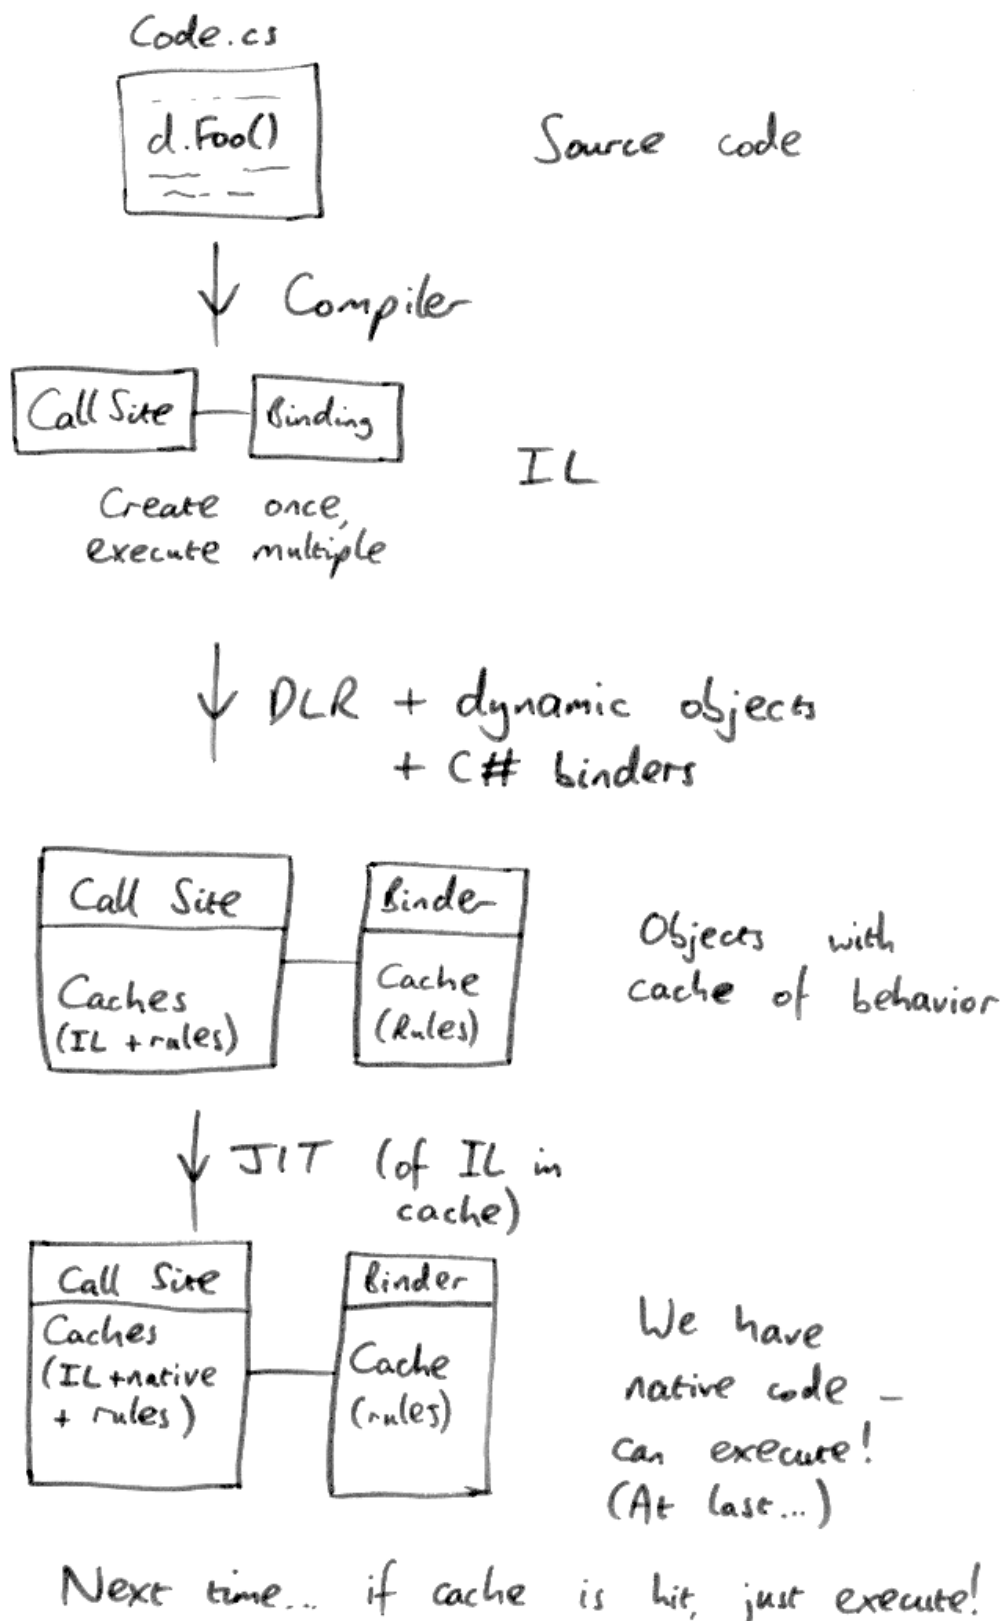 Code.cs
d.Foo()
Source code
Compiler
Call Site
Binding
IL
Create once,
execute multiple
DLR + dynamic objects
+ C# binders
Call Site
Binder
Caches
(IL + rules)
Cache
(Rules)
Objects with
cache of behavior
JIT (of IL in
cache)
Call Site
Binder
Caches
(IL + native
+ rules)
Cache
(rules)
We have
native code –
can execute!
(At last...)
Next time... if cache is hit, just execute!